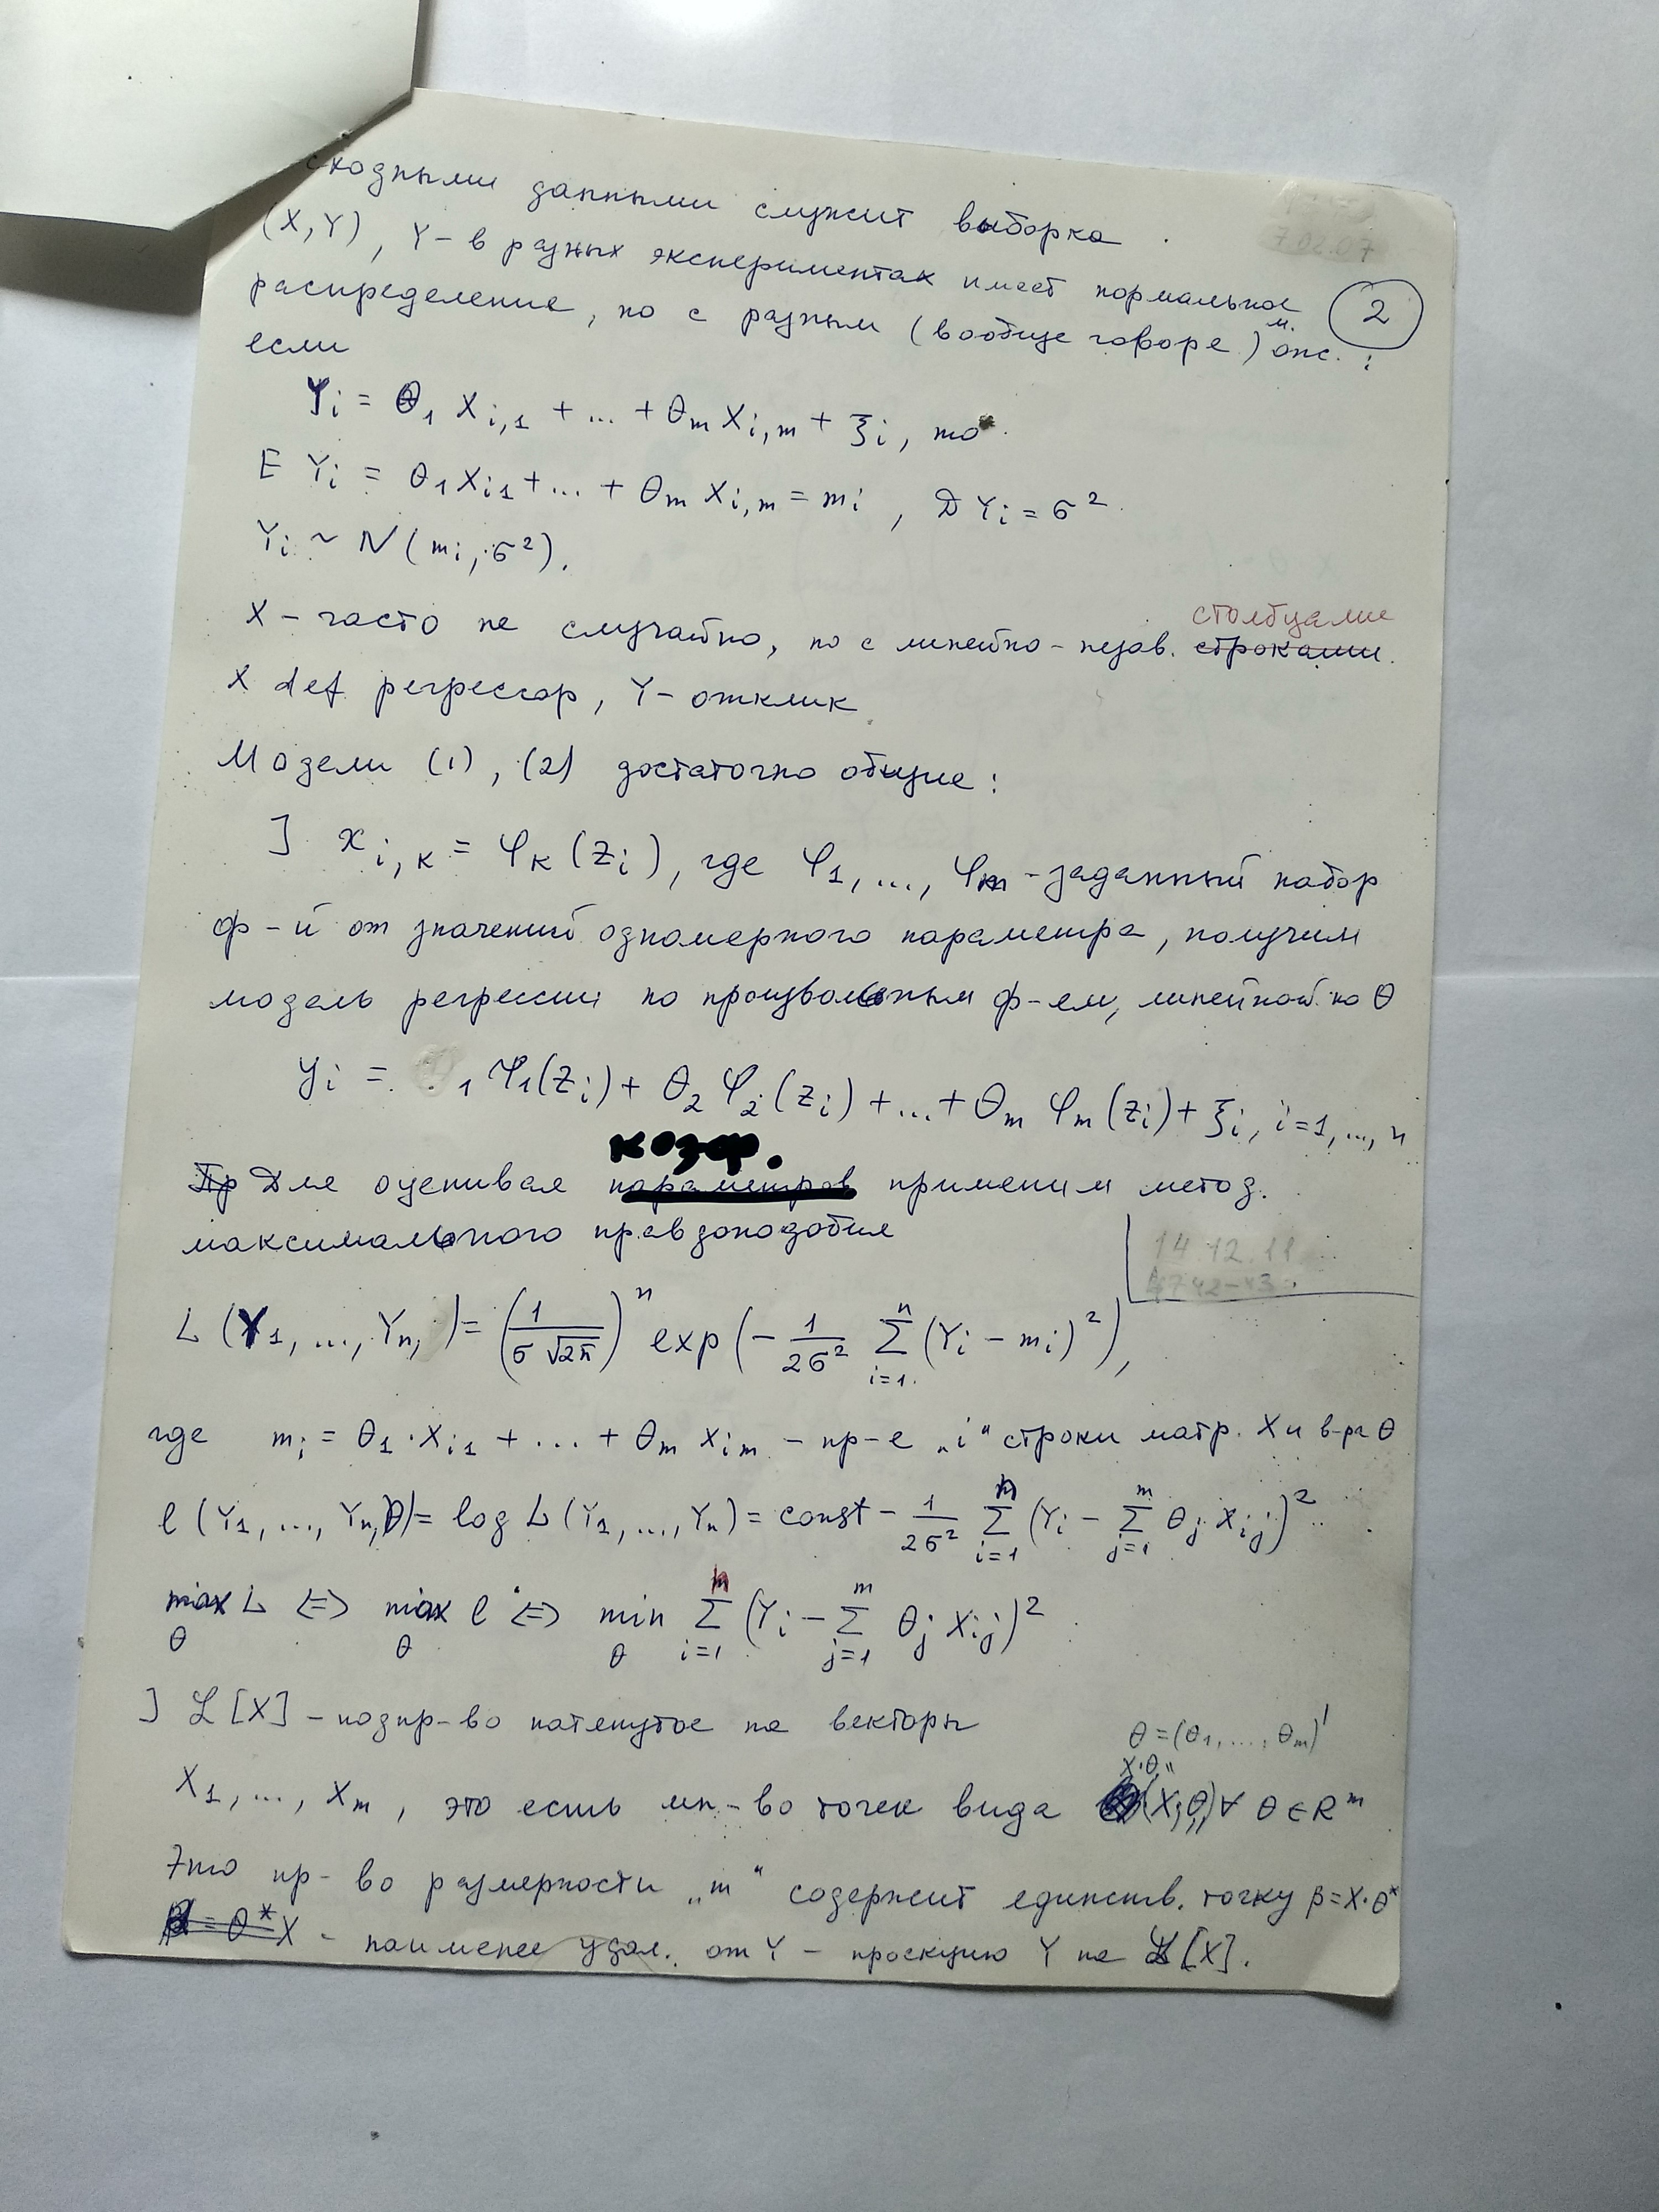 сходными данными служит выборка
7.02.07
(X,Y), Y - в разных экспериментах имеет нормальное
2
распределение, но с разным (вообще говоря) м. ож. :
если
Yi = θ1 Xi,1 + ... + θm Xi,m + ξi, то
E Yi = θ1 Xi1 + ... + θm Xi,m = mi , D Yi = σ²
Yi ~ N(mi, σ²).
столбцами
X - часто не случайно, но с линейно - незав. строками.
X def регрессор, Y - отклик
Модели (1), (2) достаточно общие :
] xi,к = φк(zi), где φ1, ..., φm - заданный набор
ф-й от значений одномерного параметра, получим
модель регрессии по произвольным ф-ем, линейной по θ
yi = 1 φ1(zi) + θ2 φ2(zi) + ... + θm φm(zi) + ξi, i=1, ..., n
коэф.
Пр Для оценивая параметров применим метод.
максимального правдоподобия
14.12.11
L (Y1, ..., Yn, ) = (1/(σ√2π))ⁿ exp(- 1/(2σ²) Σ_{i=1}^{n} (Yi - mi)²),
где mi = θ1·Xi1 + ... + θm Xim - пр-е „i“ строки матр. X и в-ра θ
l (Y1, ..., Yn, θ) = log L (Y1, ..., Yn) = const - 1/(2σ²) Σ_{i=1}^{n} (Yi - Σ_{j=1}^{m} θj Xij)²
max_θ L <=> max_θ l <=> min_θ Σ_{i=1}^{n} (Yi - Σ_{j=1}^{m} θj Xij)²
] ℒ[X] - подпр-во натянутое на векторы
θ = (θ1, ..., θm)'
X·θ"
X1, ..., Xm, это есть мн-во точек вида (X,θ),, ∀ θ ∈ R^m
Это пр-во размерности „m“ содержит единств. точку β = X·θ*
β = θ* X - наименее удал. от Y - проекцию Y на ℒ[X].